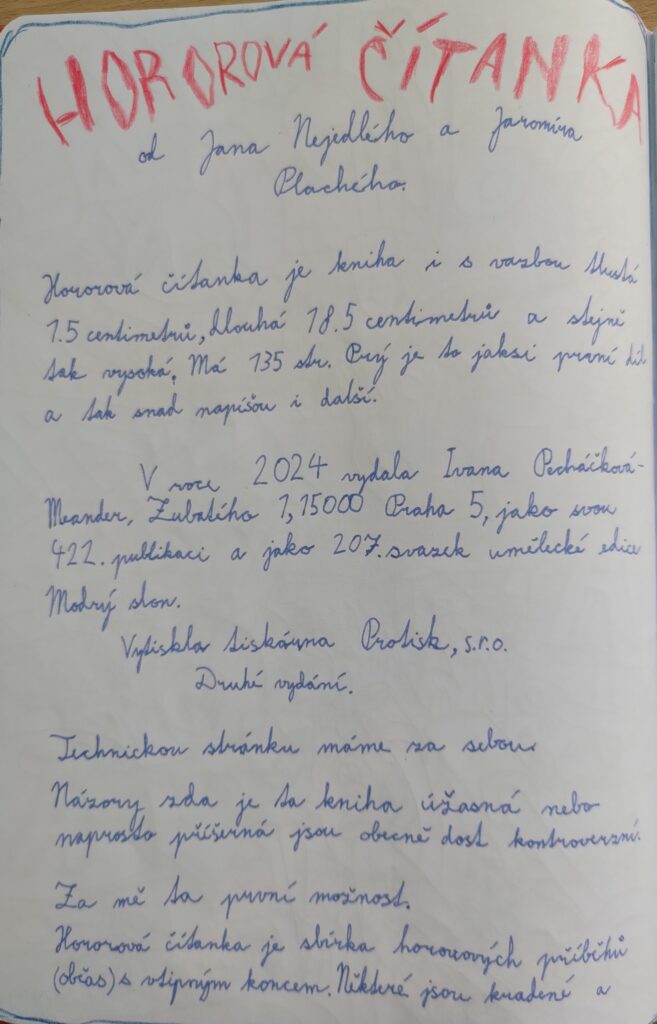 HOROROVÁ ČÍTANKA
od Jana Nejedlého a Jaromíra
Plachého.
Hororová čítanka je kniha i s vazbou tlustá
1.5 centimetrů, dlouhá 18.5 centimetrů a stejně
tak vysoká. Má 135 str. Prý je to jaksi první díl
a tak snad napíšou i další.
V roce 2024 vydala Ivana Pecháčková-
Meander, Zubatého 1, 15000 Praha 5, jako svou
422. publikaci a jako 207. svazek umělecké edice
Modrý slon.
Vytiskla tiskárna Protisk, s.r.o.
Druhé vydání.
Technickou stránku máme za sebou.
Názory zda je ta kniha úžasná nebo
naprosto příšerná jsou obecně dost kontroverzní.
Za mě ta první možnost.
Hororová čítanka je sbírka hororových příběhů
(občas) s vtipným koncem. Některé jsou kradené a